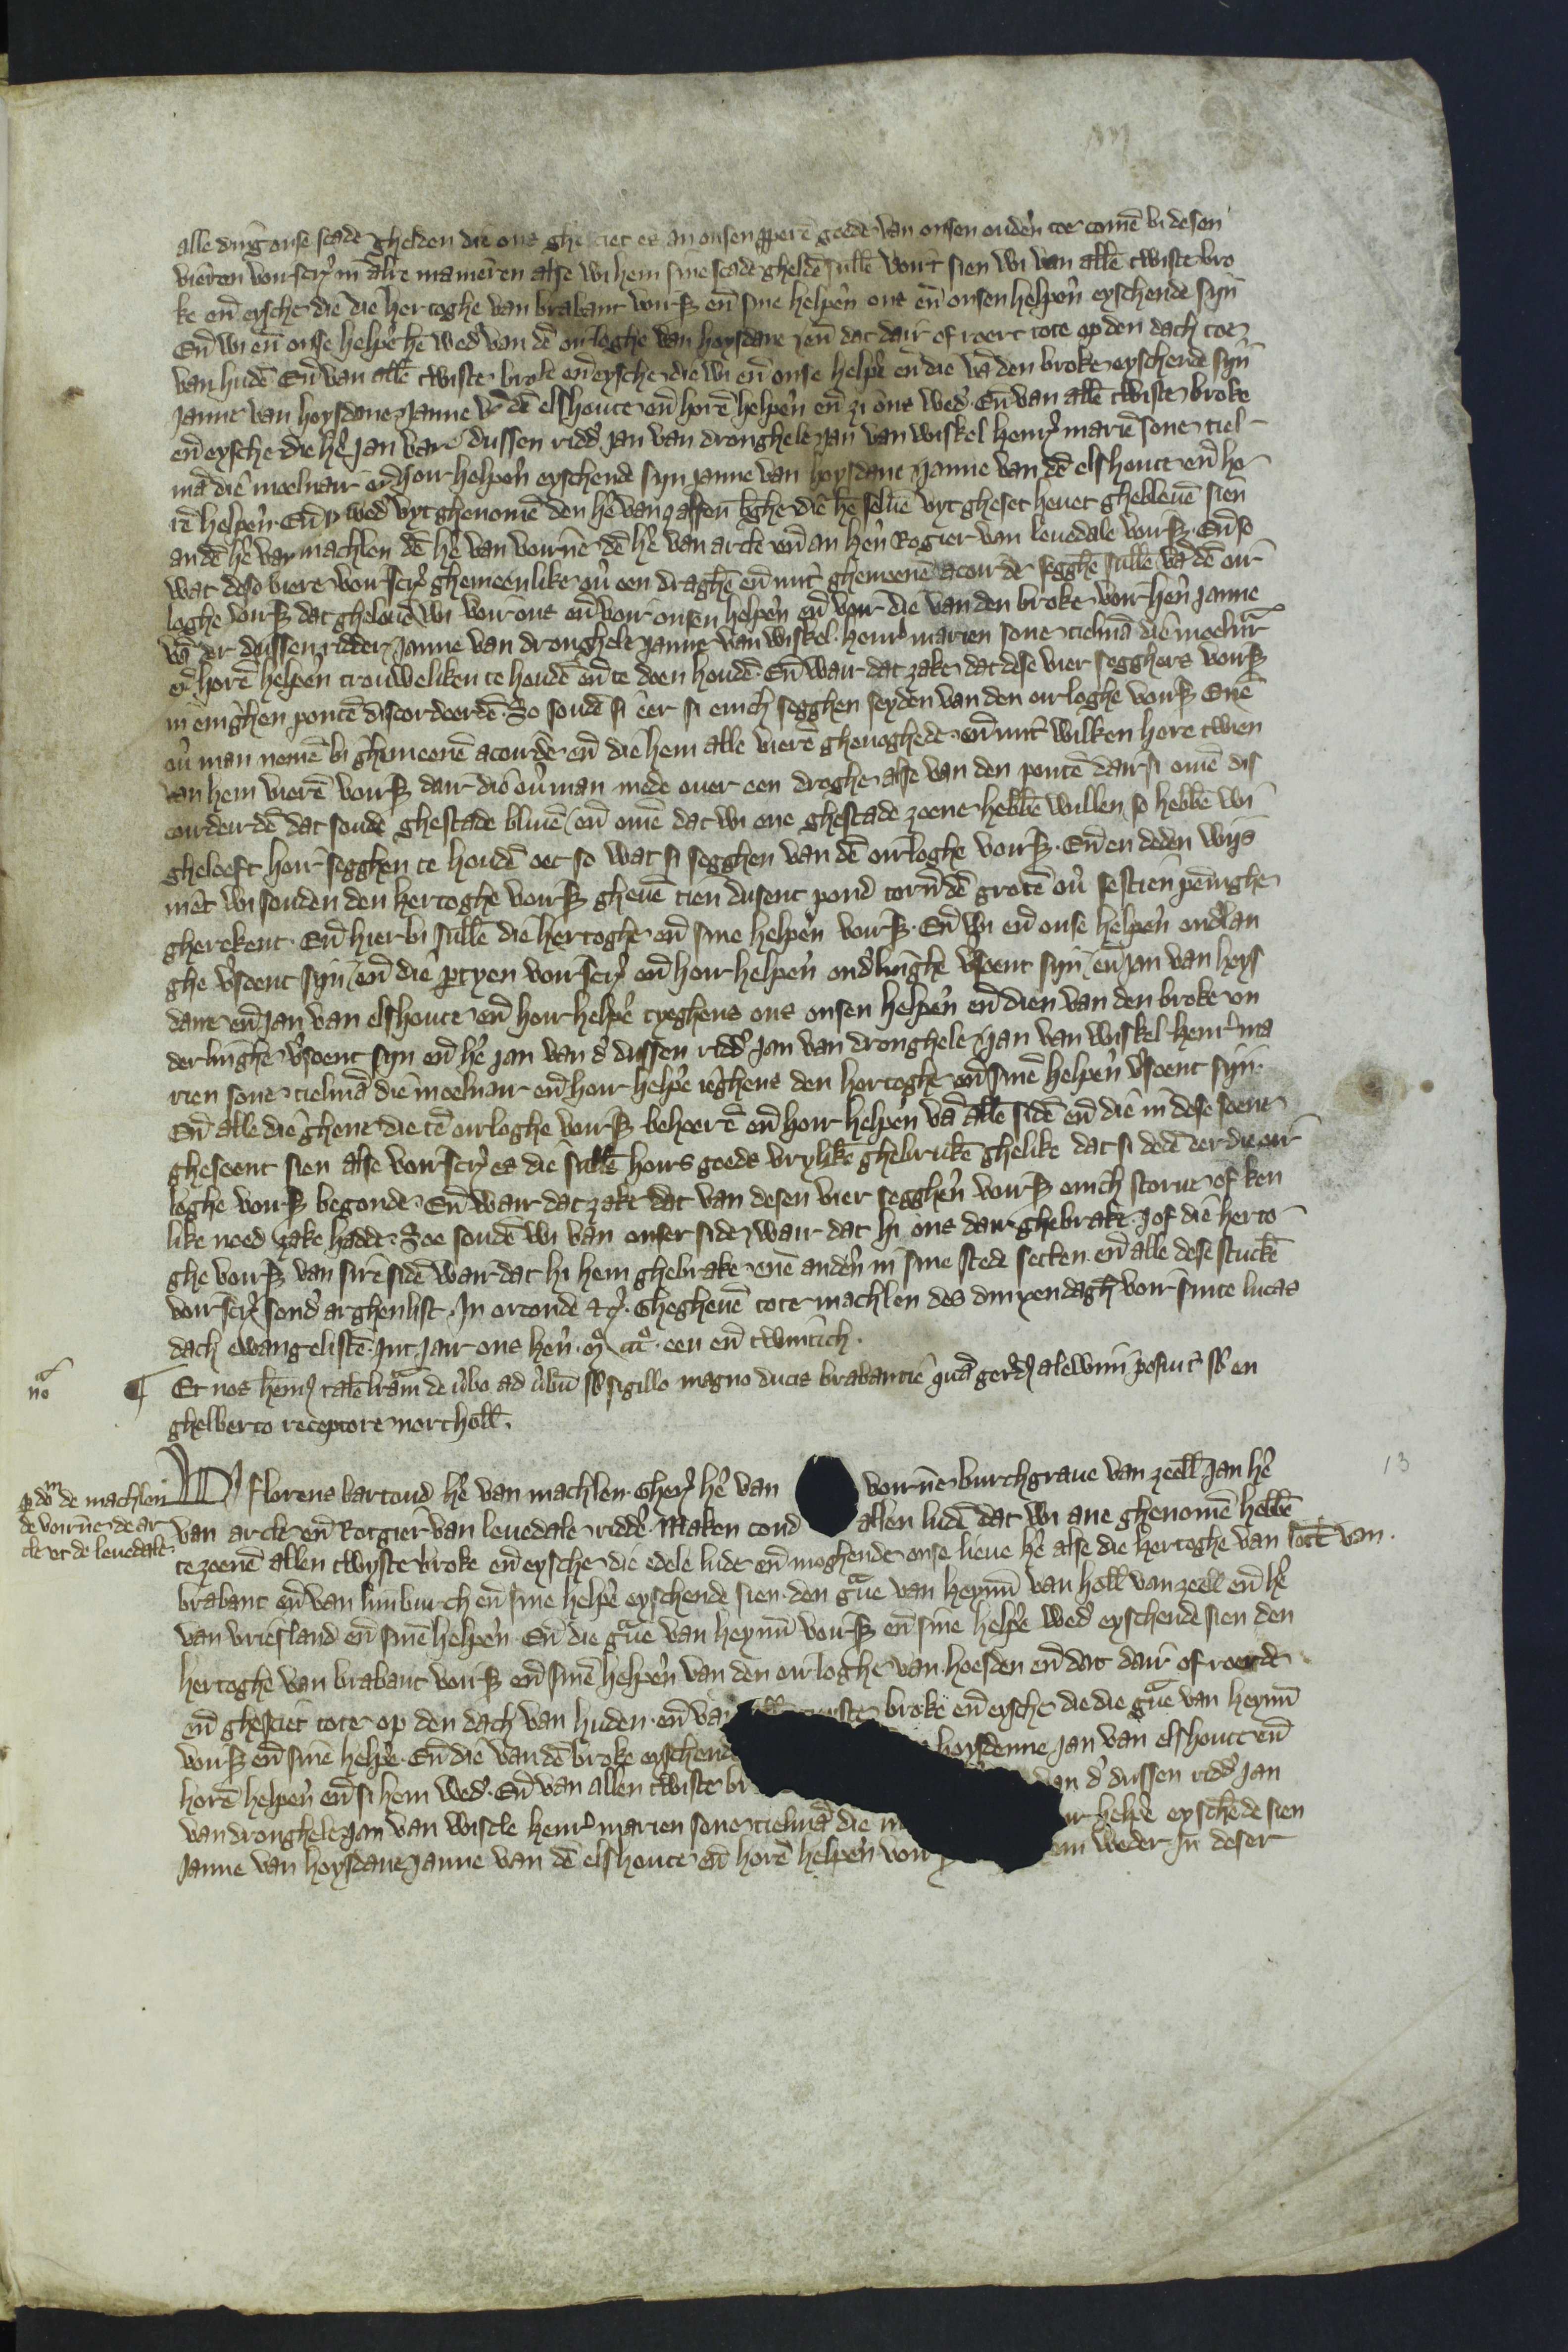 alle ding onse scade ghelden die ons ghesciet es an onsen pperē goede van onsen oudēn toe comē bi desen
vieren voirscrꝰ in alre manieren alse wi hem sine scade gheldē sullē Voirt sien wi van allē twiste bro
ke eñ eysche die die hertoghe van brabant voirß eñ sine helpēn ons eñ onsen helpēn eyschende syn
Eñ wi eñ onse helpē hē wed van dē oirloghe van hoysdane eñ dat dair of roert tote op den dach toe
van hudē Eñ van allē twiste broke eñ eysche die wi eñ onse helpē eñ die vā den broke eyschende syn
Janne van hoysdane Janne vā dē elshoute eñ horē helpēn eñ zi ons wed Eñ van allē twiste broke
eñ eysche die hē Jan vand dussen ridd Jan van dronghele Jan van wiskel henrꝰ mariē sone tiel
mā die moelnair eñ hoir helpēn eyschende syn Janne van hoysdane Janne van dē elshoute eñ ho
rē helpēn Eñ si wed wtghenomē den hē van assen wghe die hē seluē wt gheset heuet ghebleuē sien
an dē hē van machlen dē hē van voirne dē hē van arcle eñ an hēn Rogier van leuedale voirß Eñ so
wat dese viere voirscrꝰ ghemeenlike oū een draghē eñ mit ghemeenē acoirde segghē sullē vā dē oir
loghe voirß dat ghelouē wi voir ons eñ voir onsen helpēn eñ voir die van den broke voir hēn Janne
vā der dussen ridder Janne van dronghele Janne van wiskel henrꝰ marien sone tielmā die moelnar
eñ horē helpēn trouweliken te houdē eñ te doen houdē Eñ wair dat zake dat dese vier segghers voirß
in enighen pointē discordeerdē So soudē si eer si enich segghen seyden van den oirloghe voirß Enē
oū man nemē bi ghemeenē acoirde eñ die hem alle vierē ghenoghede eñ mit wilken hore twien
van hem vierē voirß dair die oū man mede ouer een droghe alse van den pointē dair si omē dis
coirdeirdē dat soude ghestade bliuē eñ omē dat wi ene ghestade zoene hebbē willen so hebbē wi
gheloeft hoir segghen te houdē oec so wat si segghen van dē oirloghe voirß Eñ en deden wijs
niet wi souden den hertoghe voirß gheuē tien dusent pond torñ dē grotē oū sestien peñighe
gherekent Eñ hier bi sullē die hertoghe eñ sine helpēn voirß Eñ wi eñ onse helpēn ondlan
ghe vsoent syn eñ die ptyen voirscrꝰ eñ hoir helpēn ondlinghe vsoent syn eñ Jan van hoys
dane eñ Jan van elshoute eñ hoir helpē tyeghens ons onsen helpēn eñ dien van den broke on
derlinghe vsoent syn eñ hē Jan van d dussen ridd Jan van dronghele Jan van wiskel henrꝰ ma
rien sone tielmā die moelnair eñ hoir helpē ieghens den hertoghe eñ sinē helpēn vsoent syn
Eñ alle die ghene die tē oirloghe voirß behoerē eñ hoir helpēn vā alle sidē eñ die in dese soene
ghesoent sien alse voirscrꝰ es die sullē hoirs goeds vrylikē ghebrukē ghelike dat si dedē eer die oir
loghe voirß begonde Eñ wair dat zake dat van desen vier segghēn voirß enich storue of ken
like nood zake hadde Soe soudē wi van onser side wair dat hi ons dair ghebrake Jof die herto
ghe voirß van sire sidē wair dat hi hem ghebrake enē andēn in sine stede setten eñ alle dese stuckē
voirscrꝰ sond arghenlist In orconde &cꝰ Ghegheuē tote machlen des dinxendagh voir sinte lucas
dach ewangelistē Int Jair ons hēn mo ccco een eñ twintich
no
¶ Et nos hēmꝰ talē lrām de ūbo ad ūbū sß sigillo magno ducis brabantie quā gerdꝰ alewini posuit sß en
ghelberto receptore northoll
13
p dom de machlen
de voirne de ar
cle et de leuedale
Wi florens bartoud hē van machlen Gherꝰ hē van voirne burchgraue van zeell Jan hē
van arcle eñ Rotgier van leuedale riddē Maken cond allen ludē dat wi ane ghenomē hebbē
te zoenē allen twyste broke eñ eysche die edele lude eñ moghende onse lieue hē alse die hertoghe van lotē van
brabant eñ van limburch eñ sine helpē eyschende sien den gūe van heynū van holl van zeell eñ hē
van vriesland eñ sinē helpēn Eñ die gūe van heynū voirß eñ sine helpē wed eyschende sien den
hertoghe van brabant voirß eñ sinē helpēn van den oirloghe van hoesden eñ dat dair of roerde
eñ ghesciet tote op den dach van huden eñ va twiste broke eñ eysche die die gūe van heynū
voirß eñ sinē helpē Eñ die van dē broke eyschend hoysdenne Jan van elshout eñ
horē helpēn eñ si hem wed Eñ van allen twiste br van d dussen ridd Jan
van dronghele Jan van wiscle henrꝰ marien sone tielmā die m ir helpē eyschēde sien
Janne van hoysdane Janne van dē elshoute eñ horē helpēn voir em weder In deser